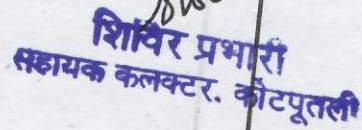 शिविर प्रभारी
सहायक कलक्टर. कोटपूतली